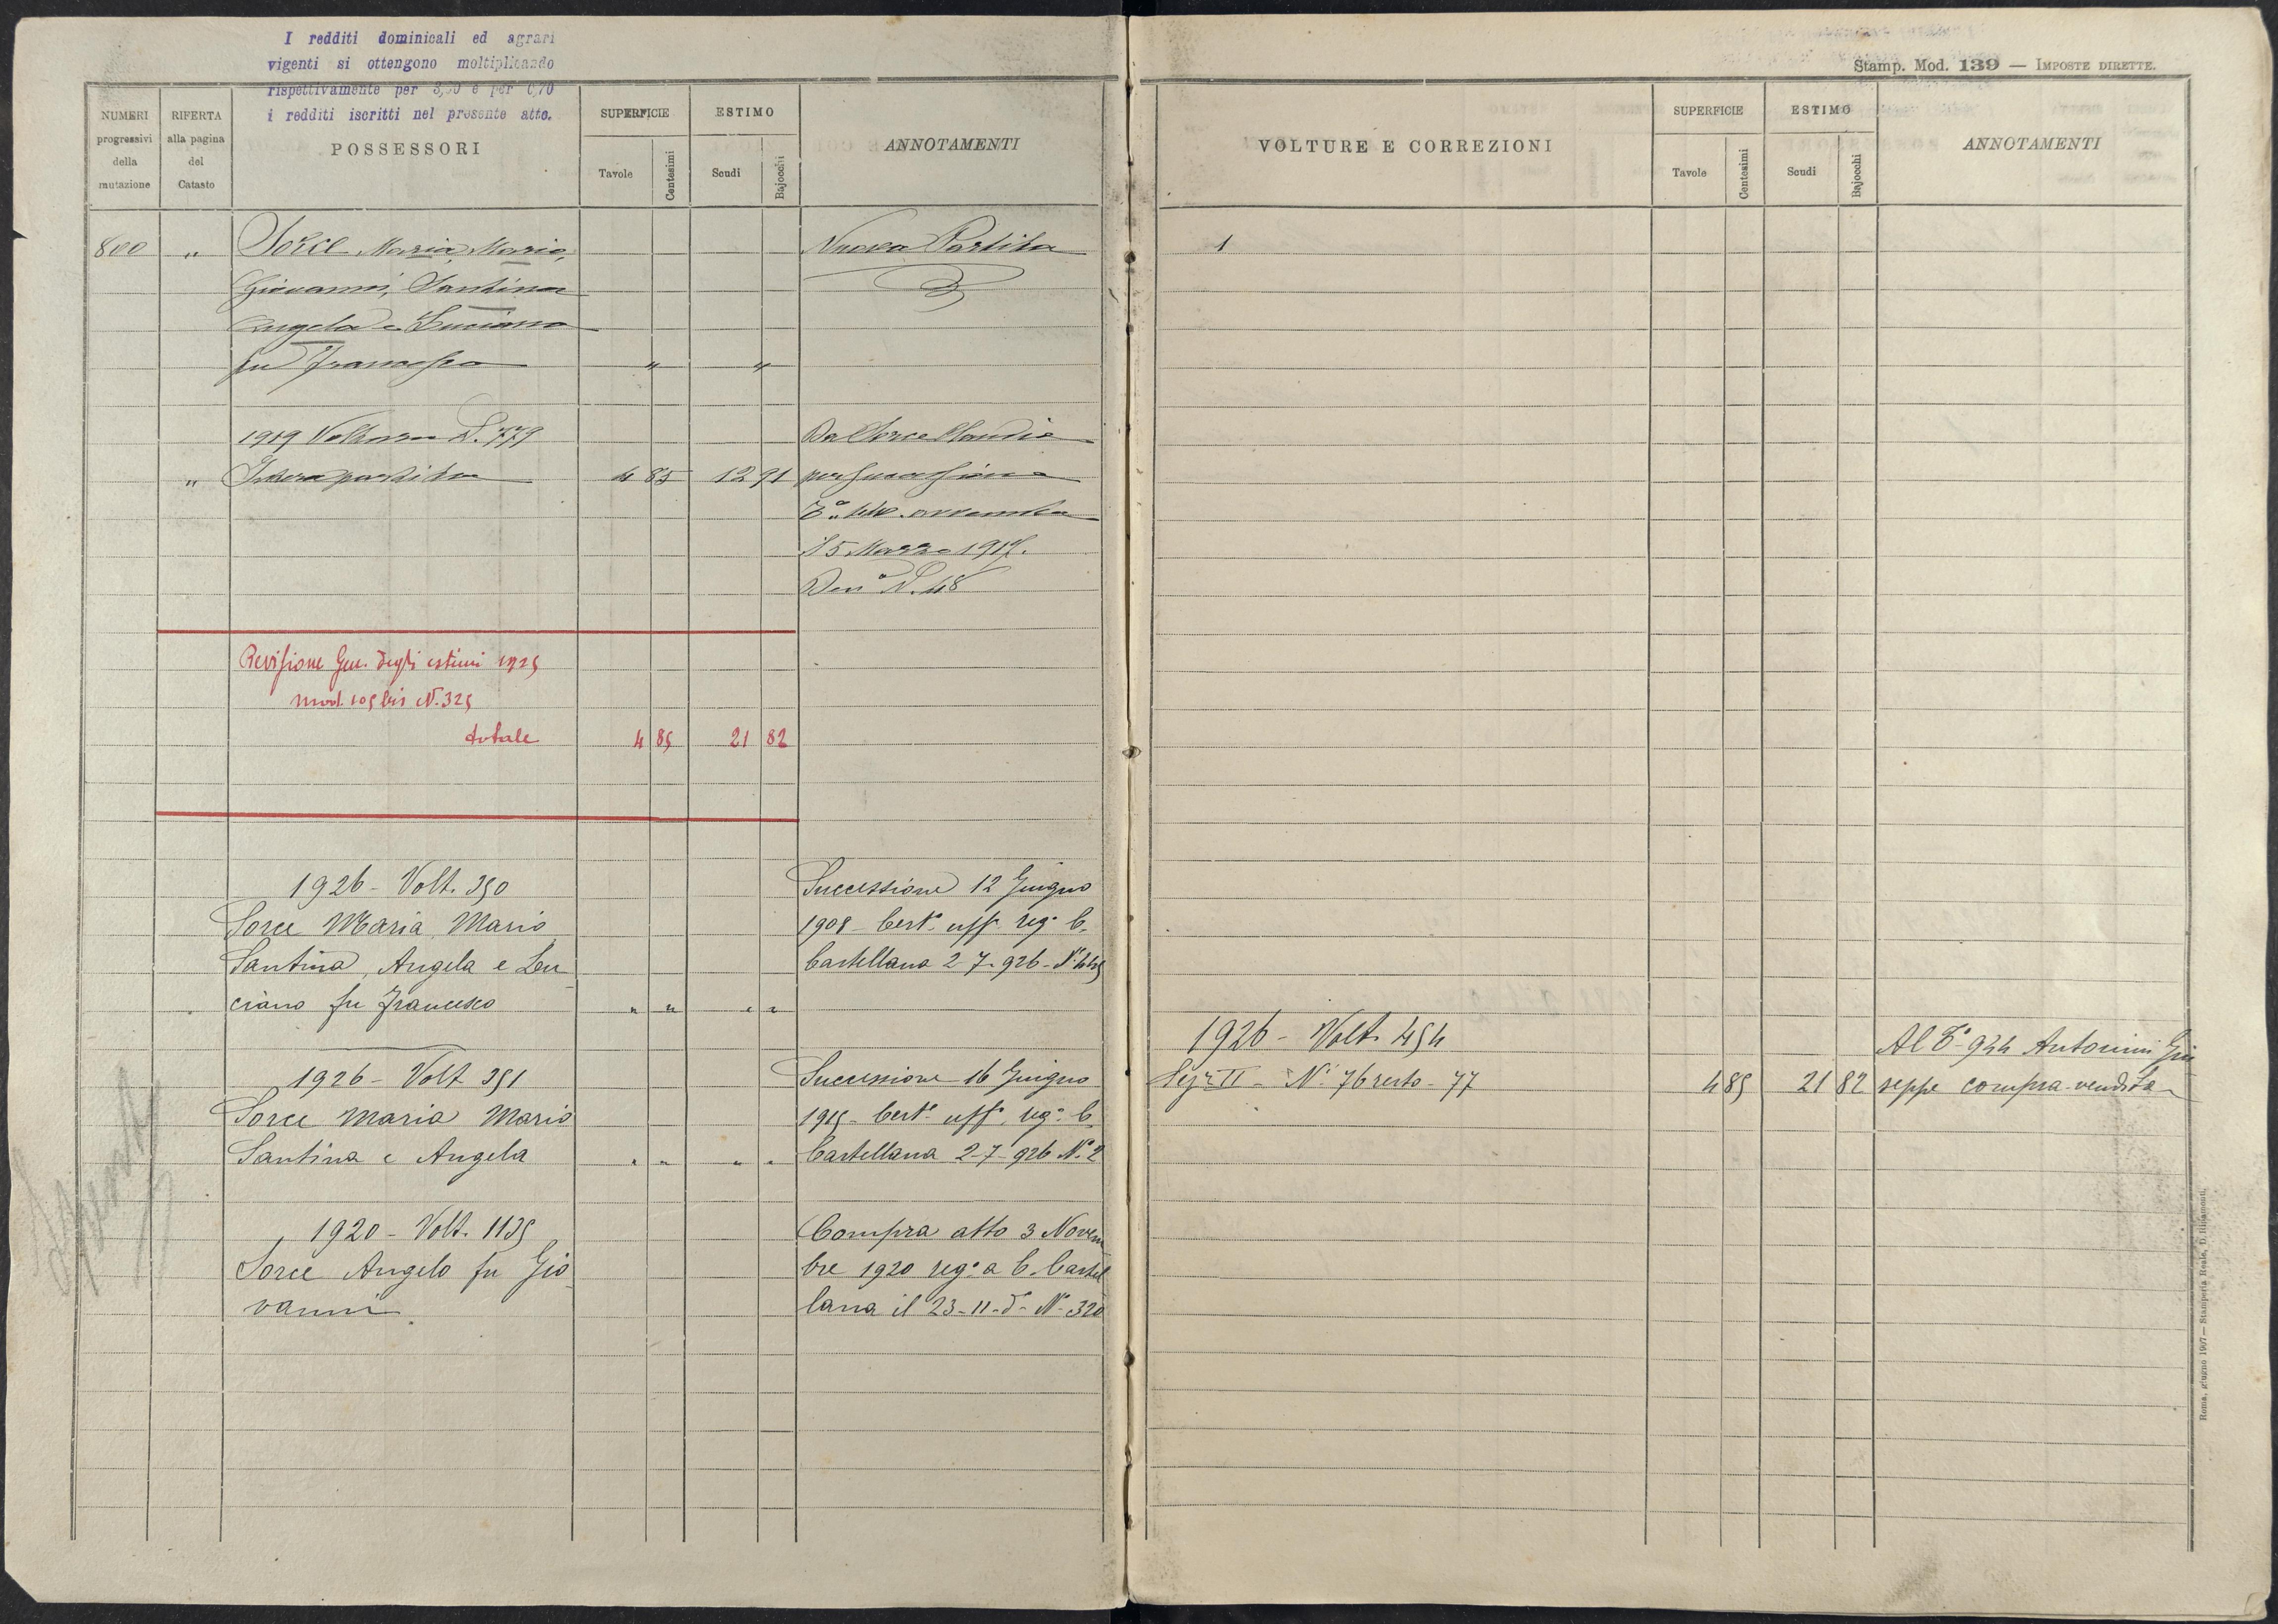 I redditi dominicali ed agrari
vigenti si ottengono moltiplicando
rispettivamente per 3,50 e per 0,70
i redditi iscritti nel presente atto.
NUMERI
progressivi
della
mutazione
RIFERTA
alla pagina
del
Catasto
POSSESSORI
SUPERFICIE
Tavole
Centesimi
ESTIMO
Scudi
Bajocchi
ANNOTAMENTI
800 " Sorce Maria, Mario, Nuova Partita
Giovanni, Santina
Angela e Luciano
fu Francesco " "
1919 Voltura N. 779 Da Sorce Claudio
" Intera partita 4 85 12 91 per successione
15 Marzo 1917.
Den° N. 48
Revisione Gen. degli estimi 1925
mod. 105 bis N. 325
totale 4 85 21 82
1926 - Volt. 350 Successione 12 Giugno
Sorce Maria, Mario 1908 - Cert° uff° reg° C.
Santina, Angela e Lu Castellana 2-7-926 -
ciano fu Francesco " " " "
1926 - Volt 351 Successione 16 Giugno
Sorce Maria Mario 1915 - Cert° uff° reg° C.
Santina e Angela " " " " Castellana 2-7-926 N. 2
1920 - Volt. 1135 Compra atto 3 Novem
Sorce Angelo fu Gio bre 1920 reg° a C. Castel
vanni lana il 23-11-d° N° 320
Stamp. Mod. 139 — IMPOSTE DIRETTE.
VOLTURE E CORREZIONI
SUPERFICIE
Tavole
Centesimi
ESTIMO
Scudi
Bajocchi
ANNOTAMENTI
1
1926 - Volt. 454 Al 944 Antonini Giu
Sez. II - N° 76 resto - 77 4 85 21 82 seppe compra-vendita
Roma, giugno 1907 — Stamperia Reale, D. Ripamonti.